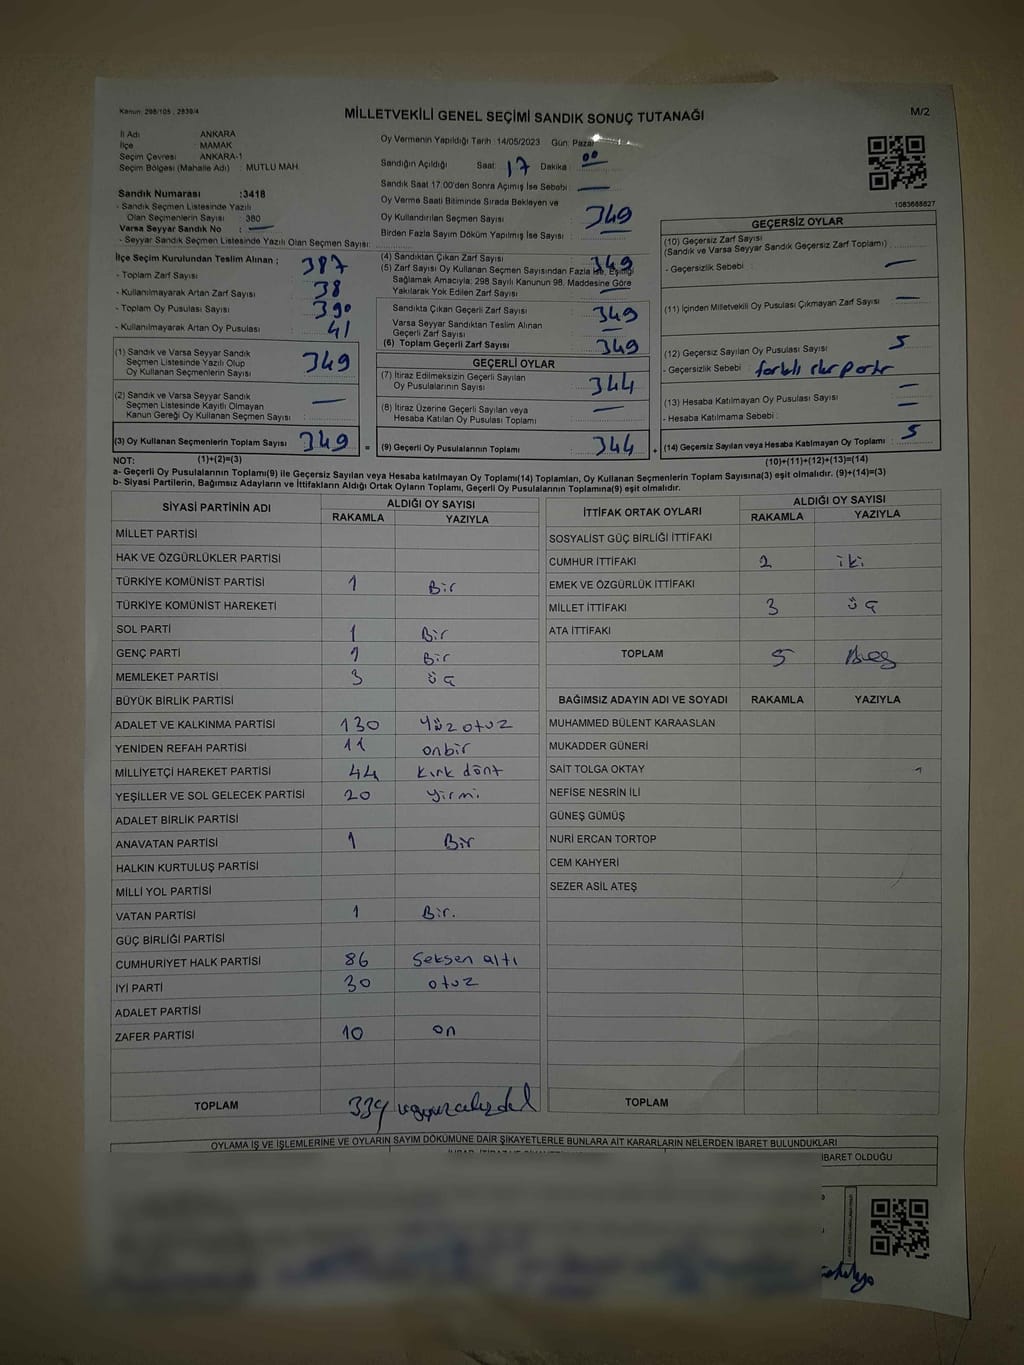 Kanun: 298/105 ; 2839/4
MİLLETVEKİLİ GENEL SEÇİMİ SANDIK SONUÇ TUTANAĞI
M/2
İl Adı ANKARA
İlçe MAMAK
Seçim Çevresi ANKARA-1
Seçim Bölgesi (Mahalle Adı) : MUTLU MAH.
Sandık Numarası :3418
- Sandık Seçmen Listesinde Yazılı
Olan Seçmenlerin Sayısı : 380
Varsa Seyyar Sandık No : —
- Seyyar Sandık Seçmen Listesinde Yazılı Olan Seçmen Sayısı:
Oy Vermenin Yapıldığı Tarih :14/05/2023 Gün: Pazar
Sandığın Açıldığı Saat: 17 Dakika : 00
Sandık Saat 17.00'den Sonra Açımış İse Sebebi : —
Oy Verme Saati Bitiminde Sırada Bekleyen ve
Oy Kullandırılan Seçmen Sayısı : 349
Birden Fazla Sayım Döküm Yapılmış İse Sayısı :
1083688827
İlçe Seçim Kurulundan Teslim Alınan ;
- Toplam Zarf Sayısı : 387
- Kullanılmayarak Artan Zarf Sayısı : 38
- Toplam Oy Pusulası Sayısı : 390
- Kullanılmayarak Artan Oy Pusulası : 41
(1) Sandık ve Varsa Seyyar Sandık
Seçmen Listesinde Yazılı Olup
Oy Kullanan Seçmenlerin Sayısı : 349
(2) Sandık ve Varsa Seyyar Sandık
Seçmen Listesinde Kayıtlı Olmayan
Kanun Gereği Oy Kullanan Seçmen Sayısı : —
(3) Oy Kullanan Seçmenlerin Toplam Sayısı : 349
(4) Sandıktan Çıkan Zarf Sayısı : 349
(5) Zarf Sayısı Oy Kullanan Seçmen Sayısından Fazla İse, Eşitliği
Sağlamak Amacıyla; 298 Sayılı Kanunun 98. Maddesine Göre
Yakılarak Yok Edilen Zarf Sayısı : —
Sandıkta Çıkan Geçerli Zarf Sayısı : 349
Varsa Seyyar Sandıktan Teslim Alınan
Geçerli Zarf Sayısı : —
(6) Toplam Geçerli Zarf Sayısı : 349
GEÇERLİ OYLAR
(7) İtiraz Edilmeksizin Geçerli Sayılan
Oy Pusulalarının Sayısı : 344
(8) İtiraz Üzerine Geçerli Sayılan veya
Hesaba Katılan Oy Pusulası Toplamı : —
= (9) Geçerli Oy Pusulalarının Toplamı : 344
GEÇERSİZ OYLAR
(10) Geçersiz Zarf Sayısı
(Sandık ve Varsa Seyyar Sandık Geçersiz Zarf Toplamı)
- Geçersizlik Sebebi : —
(11) İçinden Milletvekili Oy Pusulası Çıkmayan Zarf Sayısı : —
(12) Geçersiz Sayılan Oy Pusulası Sayısı : 5
- Geçersizlik Sebebi : farklı
(13) Hesaba Katılmayan Oy Pusulası Sayısı : —
- Hesaba Katılmama Sebebi : —
+ (14) Geçersiz Sayılan veya Hesaba Katılmayan Oy Toplamı : 5
NOT: (1)+(2)=(3)
(10)+(11)+(12)+(13)=(14)
a- Geçerli Oy Pusulalarının Toplamı(9) ile Geçersiz Sayılan veya Hesaba katılmayan Oy Toplamı(14) Toplamları, Oy Kullanan Seçmenlerin Toplam Sayısına(3) eşit olmalıdır. (9)+(14)=(3)
b- Siyasi Partilerin, Bağımsız Adayların ve İttifakların Aldığı Ortak Oyların Toplamı, Geçerli Oy Pusulalarının Toplamına(9) eşit olmalıdır.
SİYASİ PARTİNİN ADI ALDIĞI OY SAYISI
RAKAMLA YAZIYLA
MİLLET PARTİSİ
HAK VE ÖZGÜRLÜKLER PARTİSİ
TÜRKİYE KOMÜNİST PARTİSİ 1 Bir
TÜRKİYE KOMÜNİST HAREKETİ
SOL PARTİ 1 Bir
GENÇ PARTİ 1 Bir
MEMLEKET PARTİSİ 3 üç
BÜYÜK BİRLİK PARTİSİ
ADALET VE KALKINMA PARTİSİ 130 Yüz otuz
YENİDEN REFAH PARTİSİ 11 onbir
MİLLİYETÇİ HAREKET PARTİSİ 44 Kırk dört
YEŞİLLER VE SOL GELECEK PARTİSİ 20 yirmi
ADALET BİRLİK PARTİSİ
ANAVATAN PARTİSİ 1 Bir
HALKIN KURTULUŞ PARTİSİ
MİLLİ YOL PARTİSİ
VATAN PARTİSİ 1 Bir.
GÜÇ BİRLİĞİ PARTİSİ
CUMHURİYET HALK PARTİSİ 86 Seksen altı
İYİ PARTİ 30 otuz
ADALET PARTİSİ
ZAFER PARTİSİ 10 on
TOPLAM 339
İTTİFAK ORTAK OYLARI ALDIĞI OY SAYISI
RAKAMLA YAZIYLA
SOSYALİST GÜÇ BİRLİĞİ İTTİFAKI
CUMHUR İTTİFAKI 2 iki
EMEK VE ÖZGÜRLÜK İTTİFAKI
MİLLET İTTİFAKI 3 üç
ATA İTTİFAKI
TOPLAM 5 Beş
BAĞIMSIZ ADAYIN ADI VE SOYADI RAKAMLA YAZIYLA
MUHAMMED BÜLENT KARAASLAN
MUKADDER GÜNERİ
SAİT TOLGA OKTAY
NEFİSE NESRİN İLİ
GÜNEŞ GÜMÜŞ
NURİ ERCAN TORTOP
CEM KAHYERİ
SEZER ASİL ATEŞ
TOPLAM
OYLAMA İŞ VE İŞLEMLERİNE VE OYLARIN SAYIM DÖKÜMÜNE DAİR ŞİKAYETLERLE BUNLARA AİT KARARLARIN NELERDEN İBARET BULUNDUKLARI
İBARET OLDUĞU